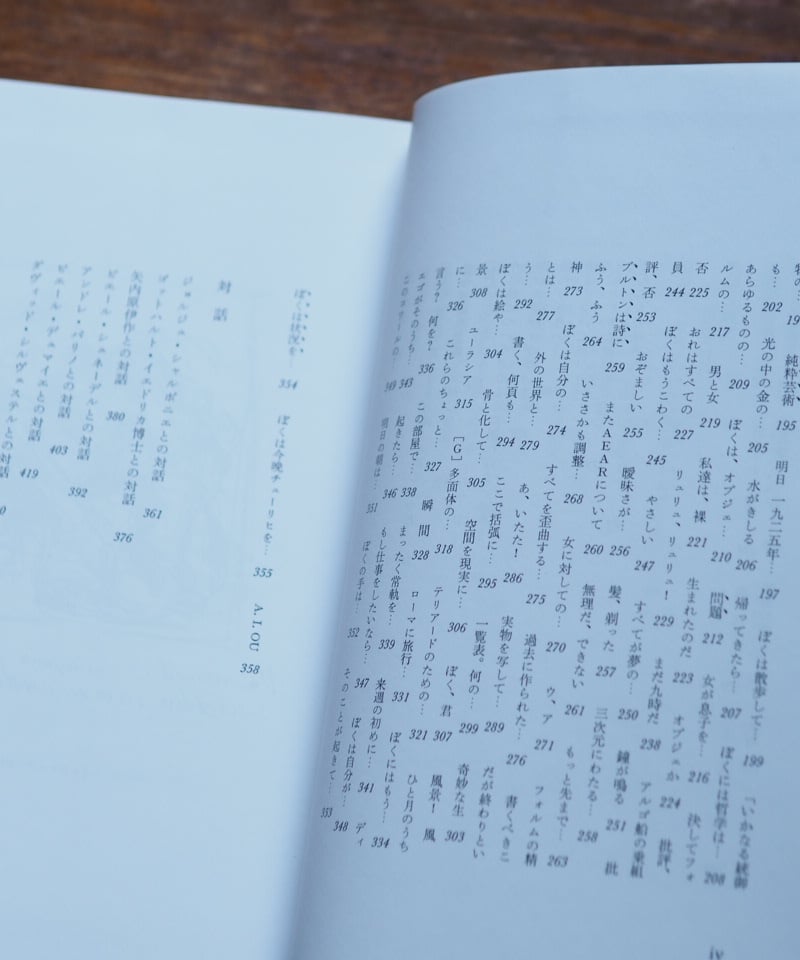 純粋芸術 195 明日 一九二五年… 197 ぼくは散歩して… 199 「いかなる統御
も… 202 光の中の金の… 205 水がきしる 206 帰ってきたら… 207 ぼくには哲学は… 208
あらゆるものの… 209 ぼくは、オブジェ… 210 問題 212 女が息子を… 216 決してフォ
ルムの… 217 男と女 219 私達は、裸 221 生まれたのだ 223 オブジェか 224 批評、
否 225 おれはすべての 227 リュリュ、リュリュ! 229 まだ九時だ 238 アルゴ船の乗組
員 244 ぼくはもうこわく… 245 やさしい 247 すべてが夢の… 250 鐘が鳴る 251 批
評、否 253 おぞましい 255 曖昧さが… 256 髪、剃った 257 三次元にわたる… 258
ブルトンは詩に 259 またAEARについて 260 無理だ、できない 261 もっと先まで… 263
ふう、ふう 264 いささかも調整… 268 女に対しての… 270 ウ、ア 271 フォルムの精
神 273 ぼくは自分の… 274 すべてを歪曲する… 275 過去に作られた… 276 書くべきこ
とは… 277 外の世界と… 279 あ、いたた! 286 実物を写して… 289 だが終わりとい
う… 292 書く、何頁も… 294 ここで括弧に… 295 一覧表。何の… 299 奇妙な生 303
ぼくは絵や… 304 骨と化して… 305 空間を現実に… 306 ぼく、君 307 風景! 風
景 308 ユーラシア 315 [G]多面体の… 318 テリアードのための… 321 ひと月のうち
に… 326 これらのちょっと… 327 瞬間 328 ローマに旅行… 331 ぼくにはもう… 334
言う? 何を? 336 この部屋で… 338 まったく常軌を… 339 来週の初めに… 341 ディ
エゴがそのうち… 343 起きたら… 346 もし仕事をしたいなら… 347 ぼくは自分が… 348
349 明日の朝は… 351 ぼくの手は… 352 そのことが起きて… 353
iv
ぼくは状況を… 354 ぼくは今晩チューリヒを… 355 A.LOU 358
対話
ジョルジュ・シャルボニエとの対話 361
ゴットハルト・イエドリカ博士との対話 376
矢内原伊作との対話 380
ピエール・シュネーデルとの対話 392
アンドレ・パリノとの対話 403
ピエール・デュマイエとの対話 419
ダヴィッド・シルヴェステルとの対話